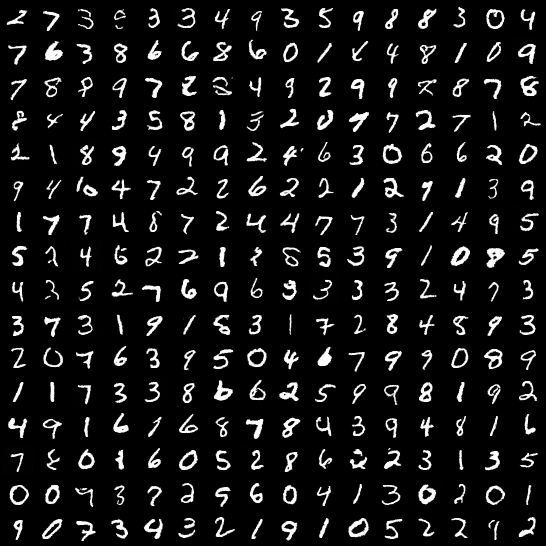 2 7 3 8 3 3 4 9 3 5 9 8 8 3 0 4
7 6 3 8 6 6 8 6 0 1 4 8 1 0 9
7 8 8 9 7 2 4 9 2 9 9 8 8 7 8
8 4 4 3 5 8 1 3 2 0 7 7 2 7 1 2
2 1 8 9 4 9 9 2 4 6 3 0 6 6 2 0
9 4 10 4 7 2 2 6 2 2 1 2 9 1 3 9
1 7 7 4 8 7 2 4 4 7 7 3 1 4 9 5
5 2 4 6 2 2 1 8 5 3 9 1 0 8 5
4 3 5 2 7 6 9 6 3 3 3 3 2 4 7 3
3 7 3 1 9 1 8 3 1 7 2 8 4 8 9 3
2 0 7 6 3 9 5 0 4 6 7 9 9 0 8 9
1 1 7 3 3 8 6 6 2 5 9 9 8 1 9 2
4 9 1 6 1 6 8 7 8 4 3 9 4 8 1 6
7 8 0 1 6 0 5 2 8 6 2 2 3 1 3 5
0 0 9 3 7 2 9 6 0 4 1 3 0 2 0 1
9 0 7 3 4 3 2 1 9 1 0 5 2 2 9 2